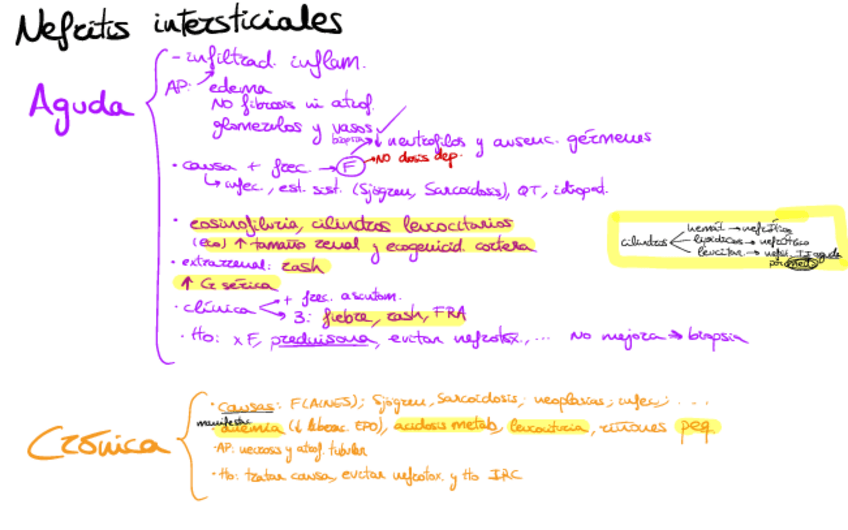 Nefritis intersticiales
Aguda
- infiltrad. inflam.
AP: edema
NO fibrosis ni atrof.
glomerulos y vasos ✓
biopsia ↓ neutrofilos y ausenc. gérmenes
· causa + frec. → F → NO dosis dep.
↳ infec., est. sist. (Sjögren, Sarcoidosis), QT, idiopat.
· eosinofiluria, cilindros leucocitarios
(eco) ↑ tamaño renal y ecogenicid. cortera
· extrarrenal: rash
↑ Cr sérica
· clínica → + frec. asintom.
→ 3: fiebre, rash, FRA
· Tto: x F, prednisona, evitar nefrotox, ... No mejora → biopsia
cilindros
hemat → nefrítico
lipídicos → nefrótico
leucitar → nefri. TI aguda
por meds
Crónica
· causas: F(AINES); Sjögren, Sarcoidosis; neoplasias; infec; ...
manifestac
· anemia (↓ liberac. EPO), acidosis metab, leucocituria, riñones peq
· AP: necrosis y atrof. tubular
· Tto: tratar causa, evitar nefrotox. y tto IRC